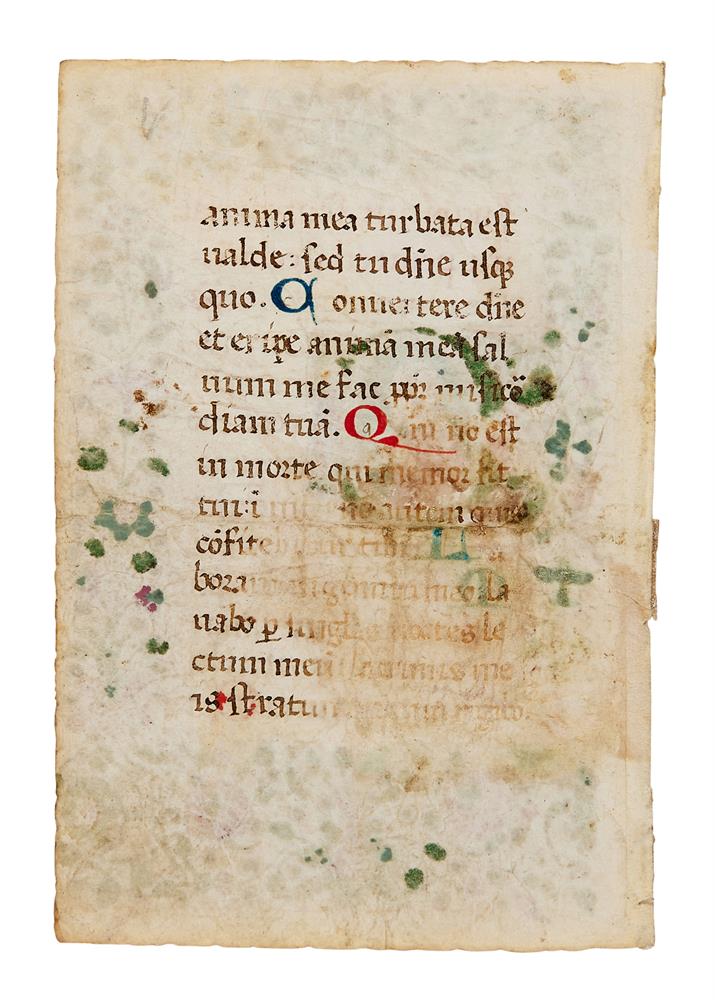 anima mea turbata est
ualde: sed tu dn̄e usqꝫ
quo. Conuertere dn̄e
et eripe animā meā sal
uum me fac ꝓpt̄ mīsicō
diam tuā. Qm̄ nō est
in morte qui memor sit
tui: ī autem quis
cōfitebitur tibi La
bora meo la
uabo ꝑ noctes le
ctum meū lacrimis me
is stratu